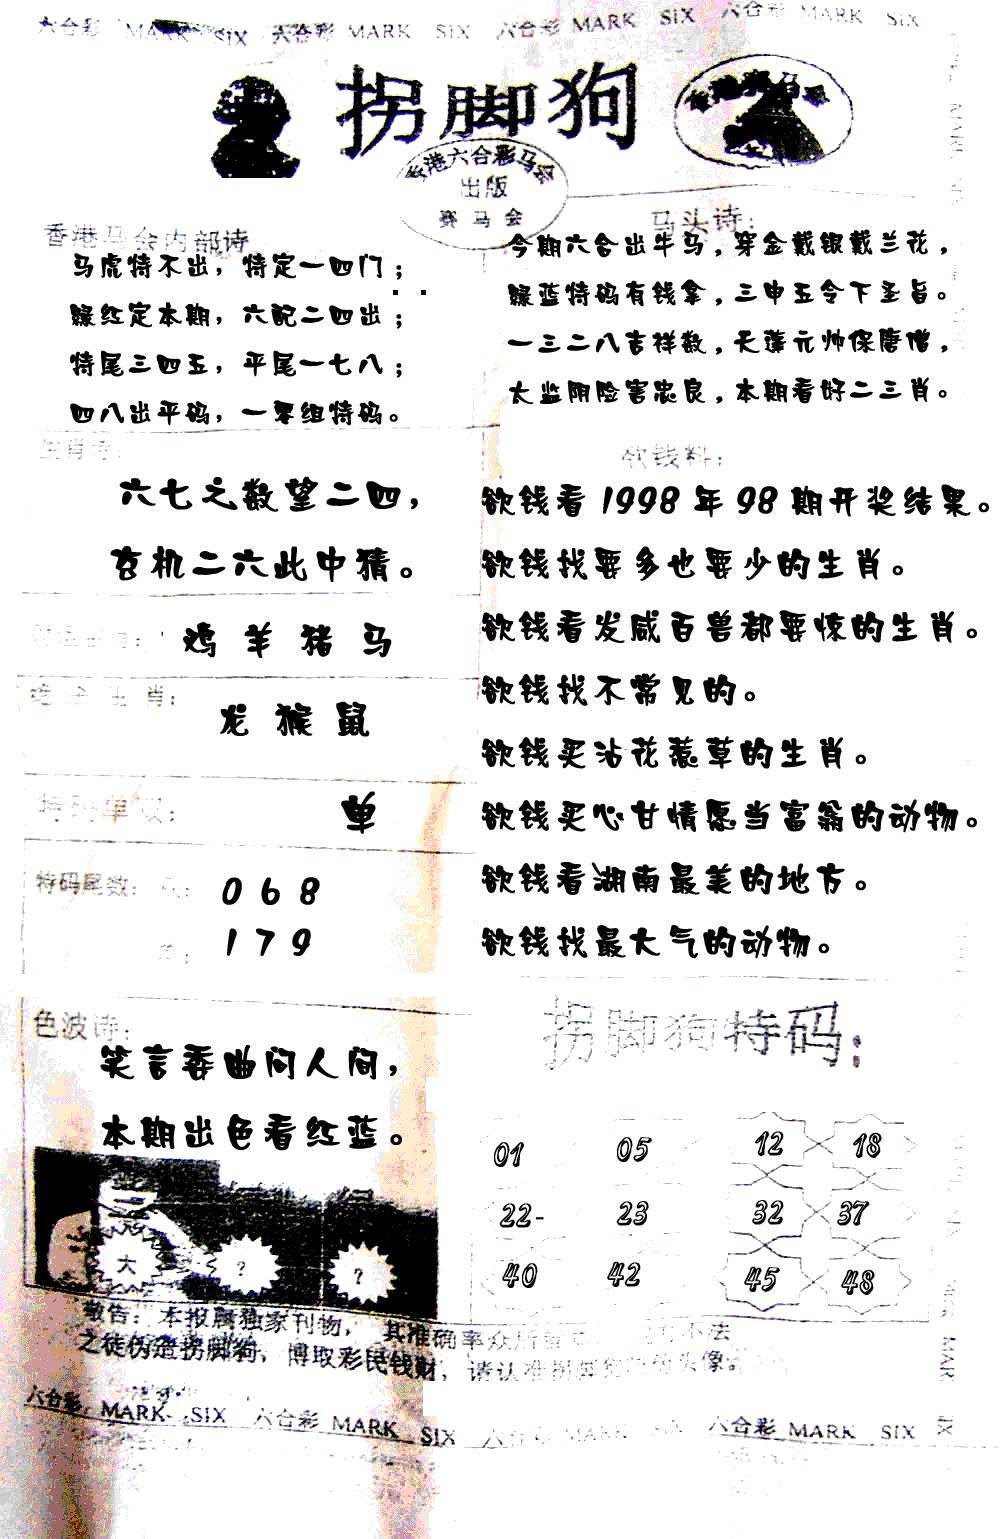 六合彩 MARK SIX 六合彩 MARK SIX 六合彩 MARK SIX 六合彩 MARK SIX
拐脚狗
香港六合彩马会
出版
赛马会
香港马会内部诗
马虎特不出，特定一四门；
绿红定本期，六配二四出；
特尾三四五，平尾一七八；
四八出平码，一零组特码。
马头诗：
今期六合出牛马，穿金戴银戴兰花，
绿蓝特码有钱拿，三申五令下圣旨。
一三二八吉祥数，天蓬元帅保唐僧，
太监阴险害忠良，本期看好二三肖。
生肖诗：
六七之数望二四，
玄机二六此中猜。
鸡 羊 猪 马
生肖：
龙 猴 鼠
特码单双：
单
特码尾数：
0 6 8
1 7 9
欲钱料：
欲钱看1998年98期开奖结果。
欲钱找要多也要少的生肖。
欲钱看发威百兽都要惊的生肖。
欲钱找不常见的。
欲钱买沾花惹草的生肖。
欲钱买心甘情愿当富翁的动物。
欲钱看湖南最美的地方。
欲钱找最大气的动物。
色波诗：
笑言委曲问人间，
本期出色看红蓝。
大 ? ?
拐脚狗特码：
01 05 12 18
22- 23 32 37
40 42 45 48
敬告：本报属独家刊物，其准确率众所 不法
之徒伪造拐脚狗，博取彩民钱财，请认准拐脚 头像
六合彩 MARK SIX 六合彩 MARK SIX 六合彩 MARK SIX 六合彩 MARK SIX